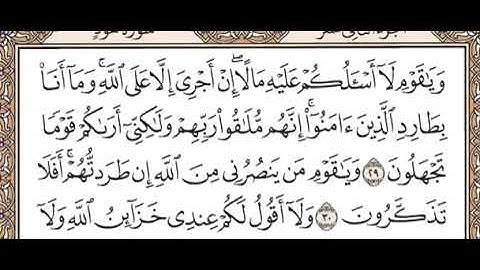 الجزء الثاني عشر سورة هود
وَيَٰقَوْمِ لَآ أَسْـَٔلُكُمْ عَلَيْهِ مَالًا ۖ إِنْ أَجْرِىَ إِلَّا عَلَى ٱللَّهِ ۚ وَمَآ أَنَا۠
بِطَارِدِ ٱلَّذِينَ ءَامَنُوٓا۟ ۚ إِنَّهُم مُّلَٰقُوا۟ رَبِّهِمْ وَلَٰكِنِّىٓ أَرَىٰكُمْ قَوْمًا
تَجْهَلُونَ ٢٩ وَيَٰقَوْمِ مَن يَنصُرُنِى مِنَ ٱللَّهِ إِن طَرَدتُّهُمْ ۚ أَفَلَا
تَذَكَّرُونَ ٣٠ وَلَآ أَقُولُ لَكُمْ عِندِى خَزَآئِنُ ٱللَّهِ وَلَآ